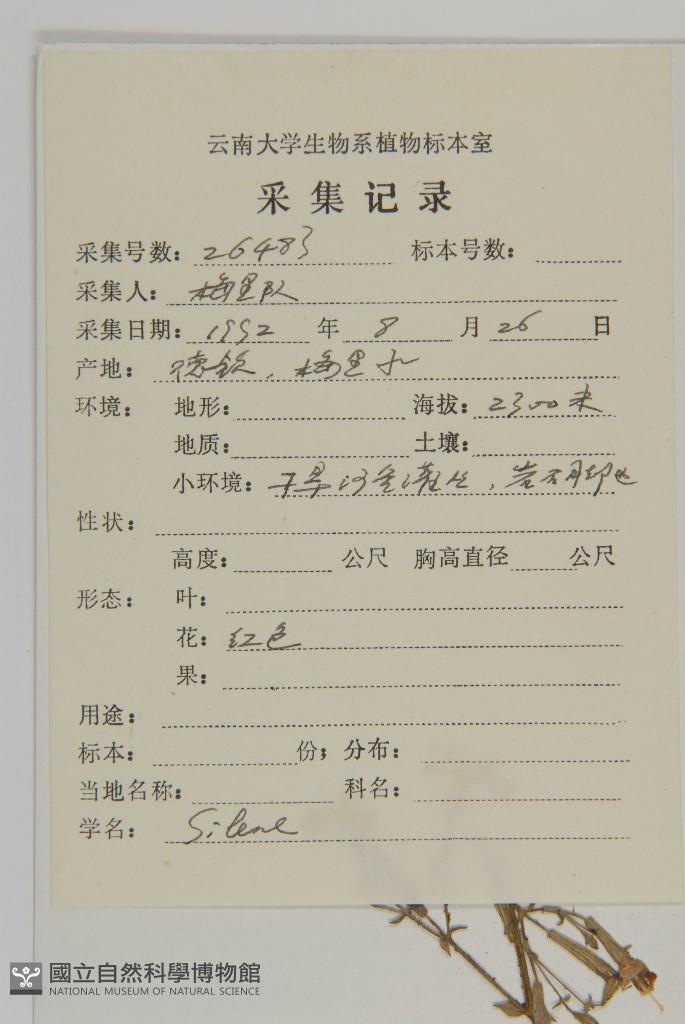 云南大学生物系植物标本室
采集记录
采集号数: 26483 标本号数:
采集人: 梅里队
采集日期: 1992 年 8 月 26 日
产地: 德钦, 梅里水
环境: 地形: 海拔: 2300米
地质: 土壤:
小环境: 干旱河谷灌丛, 岩石脚边
性状:
高度: 公尺 胸高直径 公尺
形态: 叶:
花: 红色
果:
用途:
标本: 份; 分布:
当地名称: 科名:
学名: Silene
國立自然科學博物館
NATIONAL MUSEUM OF NATURAL SCIENCE